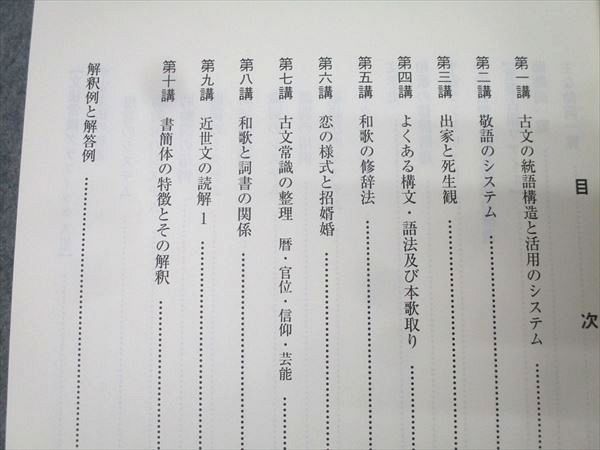 目次
第一講　古文の統語構造と活用のシステム
第二講　敬語のシステム
第三講　出家と死生観
第四講　よくある構文・語法及び本歌取り
第五講　和歌の修辞法
第六講　恋の様式と招婿婚
第七講　古文常識の整理　暦・官位・信仰・芸能
第八講　和歌と詞書の関係
第九講　近世文の読解1
第十講　書簡体の特徴とその解釈
解釈例と解答例